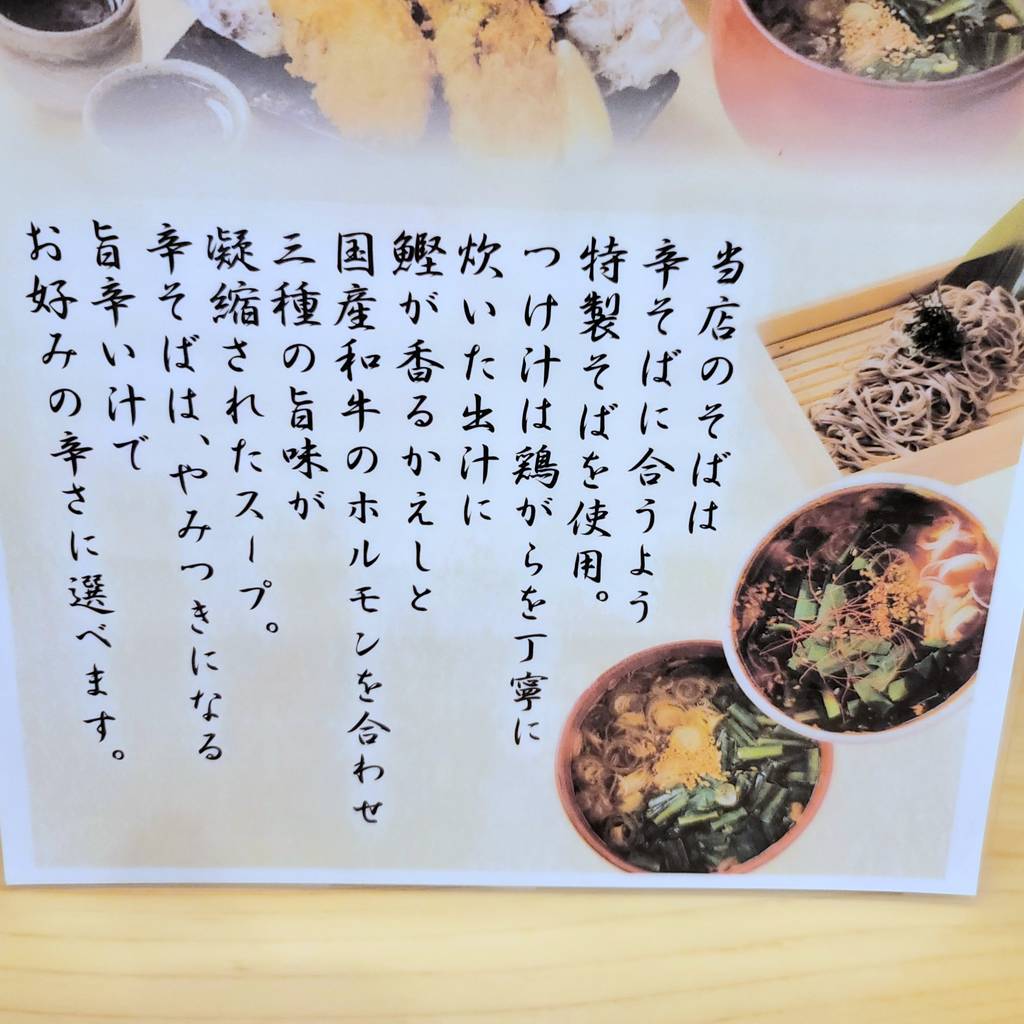 当店のそばは
辛そばに合うよう
特製そばを使用。
つけ汁は鶏がらを丁寧に
炊いた出汁に
鰹が香るかえしと
国産和牛のホルモンを合わせ
三種の旨味が
凝縮されたスープ。
辛そばは、やみつきになる
旨辛い汁で
お好みの辛さに選べます。